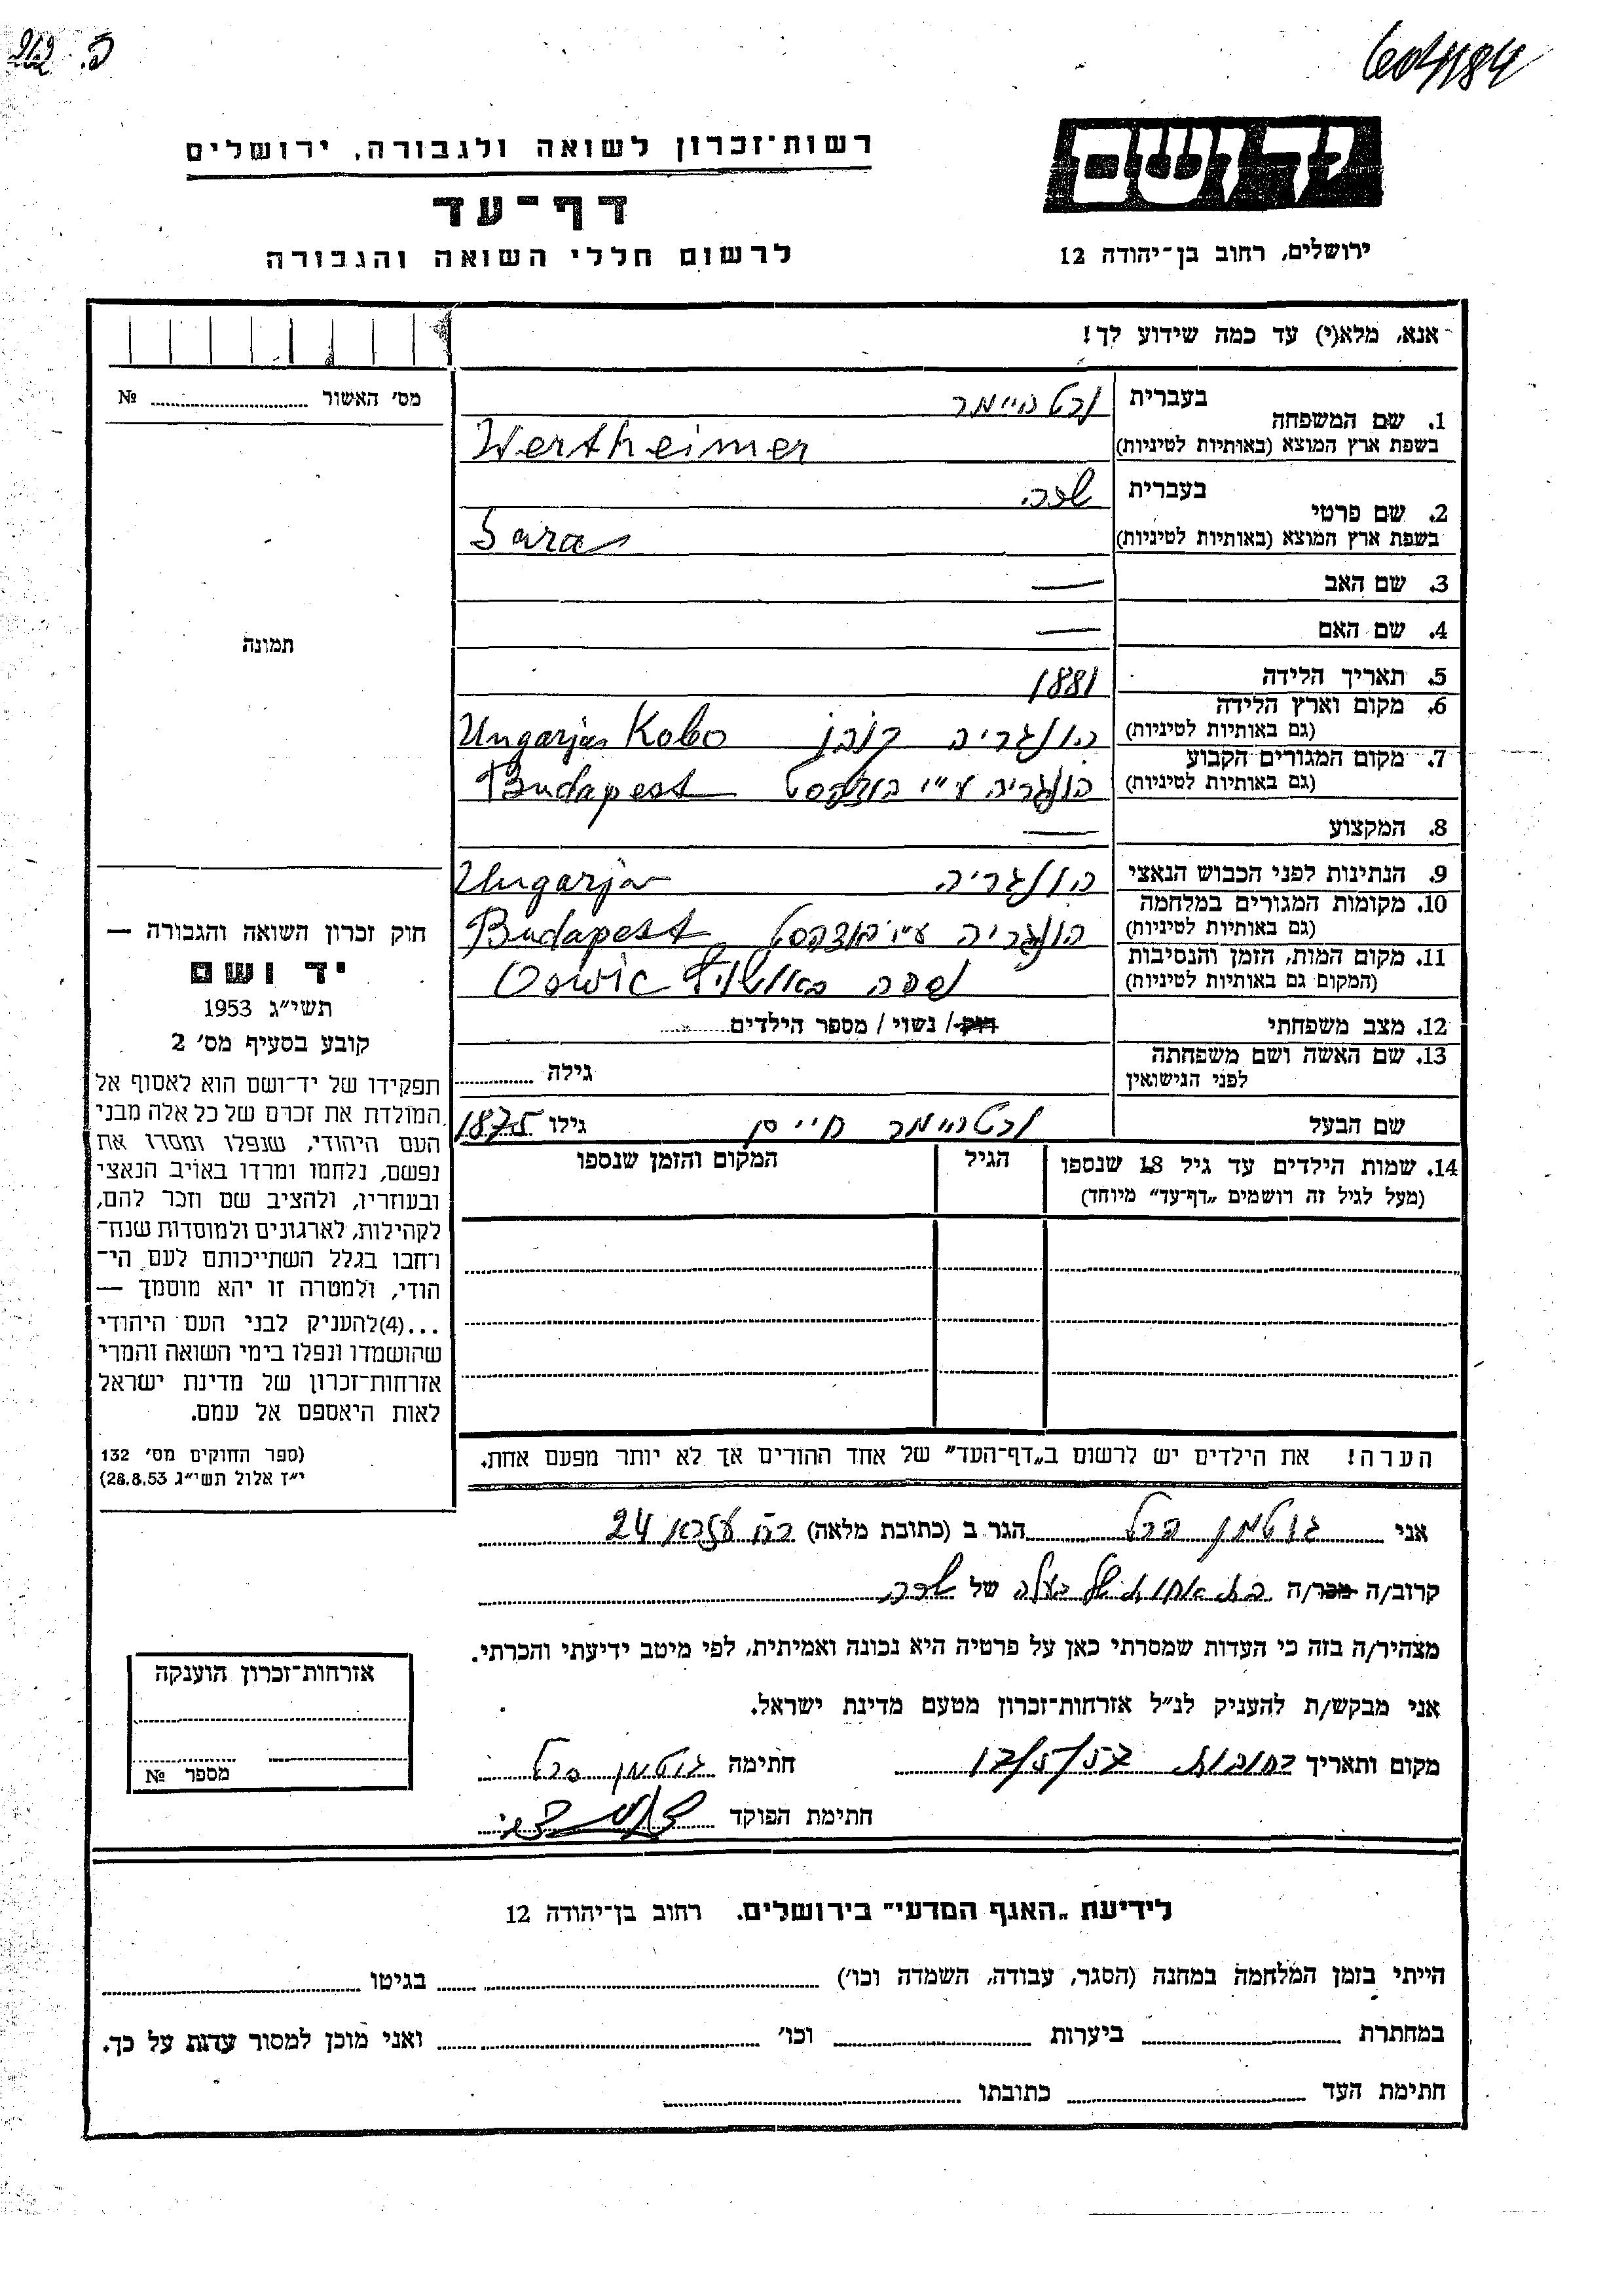 262 . פ
604184
רשות־זכרון לשואה ולגבורה, ירושלים
דף־עד
לרשום חללי השואה והגבורה
יד ושם
ירושלים, רחוב בן־יהודה 12
אנא, מלא(י) עד כמה שידוע לך!
מס' האשור № 
1. שם המשפחה
בעברית ורטהיימר
בשפת ארץ המוצא (באותיות לטיניות) Wertheimer
2. שם פרטי
בעברית שרה
בשפת ארץ המוצא (באותיות לטיניות) Sara
3. שם האב —
4. שם האם —
5. תאריך הלידה 1881
6. מקום וארץ הלידה הונגריה קובו Ungarja Kobo
(גם באותיות לטיניות)
7. מקום המגורים הקבוע הונגריה ע"י בודפסט Budapest
(גם באותיות לטיניות)
8. המקצוע —
9. הנתינות לפני הכבוש הנאצי הונגריה Ungarja
10. מקומות המגורים במלחמה הונגריה ע"י בודפסט Budapest
(גם באותיות לטיניות)
11. מקום המות, הזמן והנסיבות נספה באושויץ Oswic
(המקום גם באותיות לטיניות)
12. מצב משפחתי רווק / נשוי / מספר הילדים
13. שם האשה ושם משפחתה
לפני הנישואין גילה
שם הבעל ורטהיימר חיים גילו 1875
14. שמות הילדים עד גיל 18 שנספו
(מעל לגיל זה רושמים „דף־עד" מיוחד)
הגיל
המקום והזמן שנספו
הערה! את הילדים יש לרשום ב„דף־העד" של אחד ההורים אך לא יותר מפעם אחת.
תמונה
חוק זכרון השואה והגבורה —
יד ושם
תשי"ג 1953
קובע בסעיף מס' 2
תפקידו של יד־ושם הוא לאסוף אל
המולדת את זכרם של כל אלה מבני
העם היהודי, שנפלו ומסרו את
נפשם, נלחמו ומרדו באויב הנאצי
ובעוזריו, ולהציב שם וזכר להם,
לקהילות, לארגונים ולמוסדות שנח־
רחבו בגלל השתייכותם לעם הי־
הודי, ולמטרה זו יהא מוסמך —
...(4)להעניק לבני העם היהודי
שהושמדו ונפלו בימי השואה והמרי
אזרחות־זכרון של מדינת ישראל
לאות היאספם אל עמם.
(ספר החוקים מס' 132
י"ז אלול תשי"ג 28.8.53)
אני גוטמן הרל הגר ב (כתובת מלאה) רח עזרא 24
קרוב/ה מכר/ה בת אחות של בעלה של שרה
מצהיר/ה בזה כי העדות שמסרתי כאן על פרטיה היא נכונה ואמיתית, לפי מיטב ידיעתי והכרתי.
אני מבקש/ת להעניק לנ"ל אזרחות־זכרון מטעם מדינת ישראל.
מקום ותאריך רחובות 12/5/57 חתימה גוטמן
חתימת הפוקד
אזרחות־זכרון הוענקה
מספר №
לידיעת „האגף המדעי" בירושלים. רחוב בן־יהודה 12
הייתי בזמן המלחמה במחנה (הסגר, עבודה, השמדה וכו') בגיטו
במחתרת ביערות וכו' ואני מוכן למסור עדות על כך.
חתימת העד כתובתו